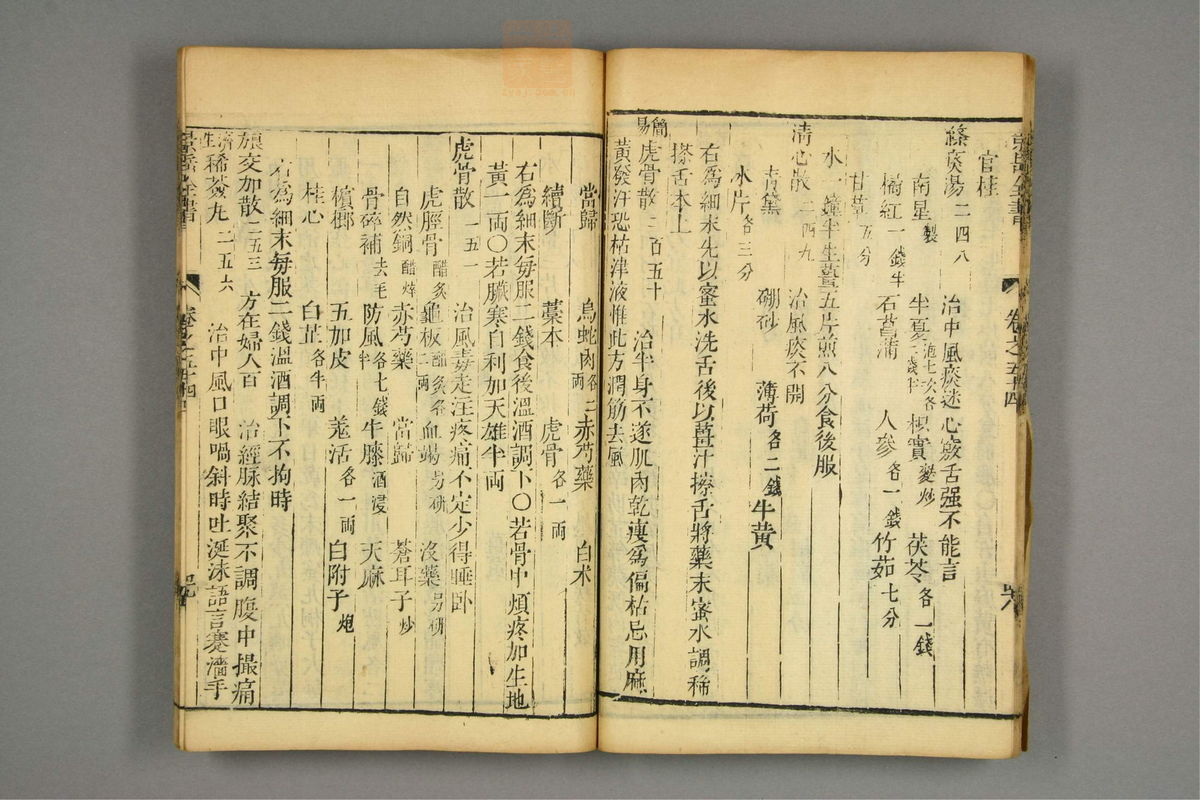 官桂
滌痰湯二四八 治中風痰迷心竅舌强不能言
南星製 半夏泡七次各二錢半 枳實麩炒 茯苓各一錢
橘紅一錢半 石菖蒲 人參各一錢 竹茹七分
甘草五分
水一鐘半生薑五片煎八分食後服
清心散二四九 治風痰不開
青黛 硼砂 薄荷各二錢 牛黃
氷片各三分
右爲細末先以蜜水洗舌後以薑汁擦舌將藥末蜜水調稀
搽舌本上
簡易虎骨散二百五十 治半身不遂肌肉乾瘦爲偏枯忌用麻
黃發汗恐枯津液惟此方潤筋去風
當歸 烏蛇肉各二両 赤芍藥 白术
續斷 藁本 虎骨各一両
右爲細末每服二錢食後溫酒調下〇若骨中煩疼加生地
黃一両〇若臟寒自利加天雄半両
虎骨散二五一 治風毒走注疼痛不定少得睡卧
虎脛骨醋炙 龜板醋炙各二両 血竭另研 沒藥另研
自然銅醋焠 赤芍藥 當歸 蒼耳子炒
骨碎補去毛 防風各七錢半 牛膝酒浸 天麻
檳榔 五加皮 羗活各一両 白附子炮
桂心 白芷各半両
右爲細末每服二錢溫酒調下不拘時
交加散二五三 方在婦人百 治經脉結聚不調腹中撮痛
濟生稀薟丸二五六 治中風口眼喎斜時吐涎沫語言蹇濇手
景岳全書
卷之五十四